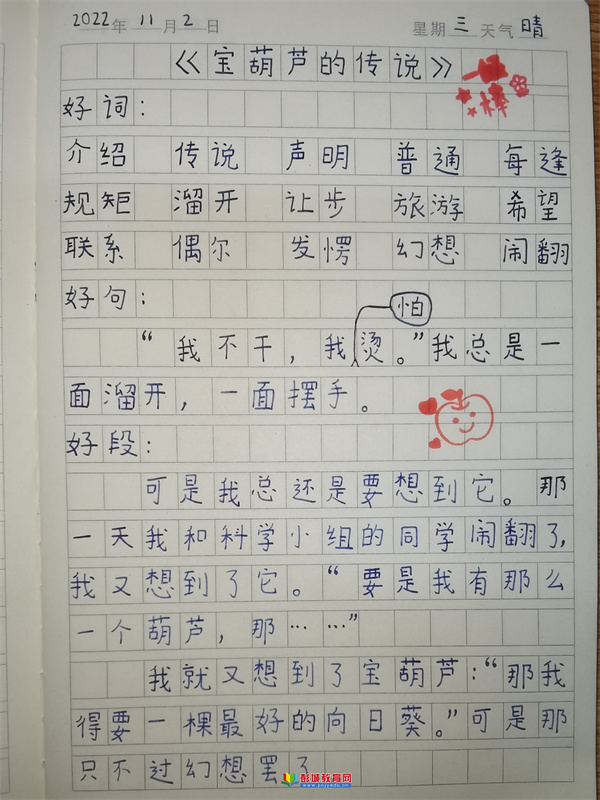 2022年11月2日 星期三 天气晴
《宝葫芦的传说》
棒
好词：
介绍 传说 声明 普通 每逢
规矩 溜开 让步 旅游 希望
联系 偶尔 发愣 幻想 闹翻
好句：
怕
“我不干，我烫。”我总是一
面溜开，一面摆手。
好段：
可是我总还是要想到它。那
一天我和科学小组的同学闹翻了，
我又想到了它。“要是我有那么
一个葫芦，那……”
我就又想到了宝葫芦：“那我
得要一棵最好的向日葵。”可是那
只不过幻想罢了
彭城教育网